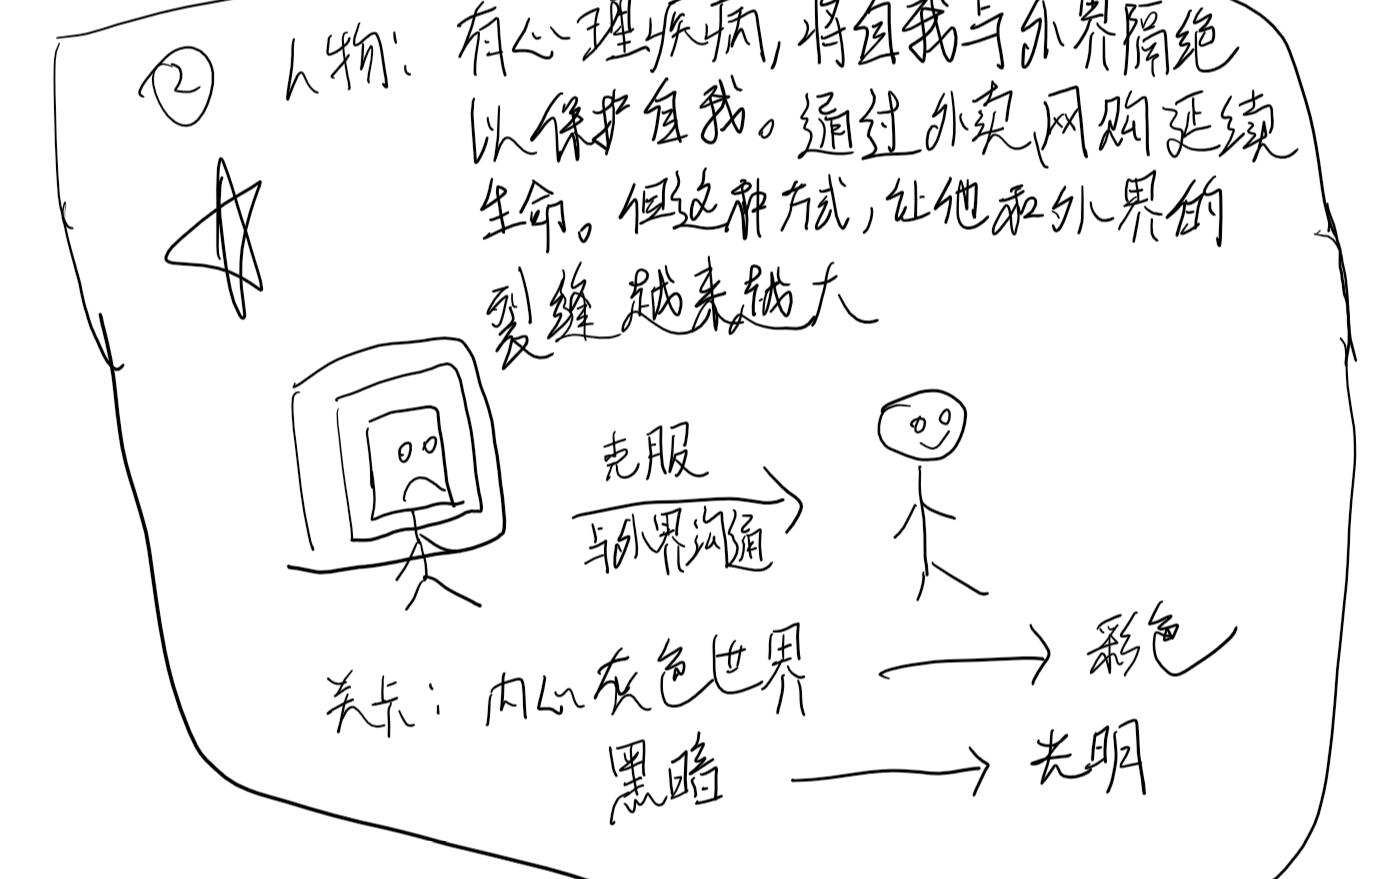 ② 人物: 有心理疾病,将自我与外界隔绝
以保护自我。通过外卖、网购延续
生命。但这种方式,让他和外界的
裂缝越来越大
克服
与外界沟通
关卡: 内心灰色世界 → 彩色
黑暗 → 光明